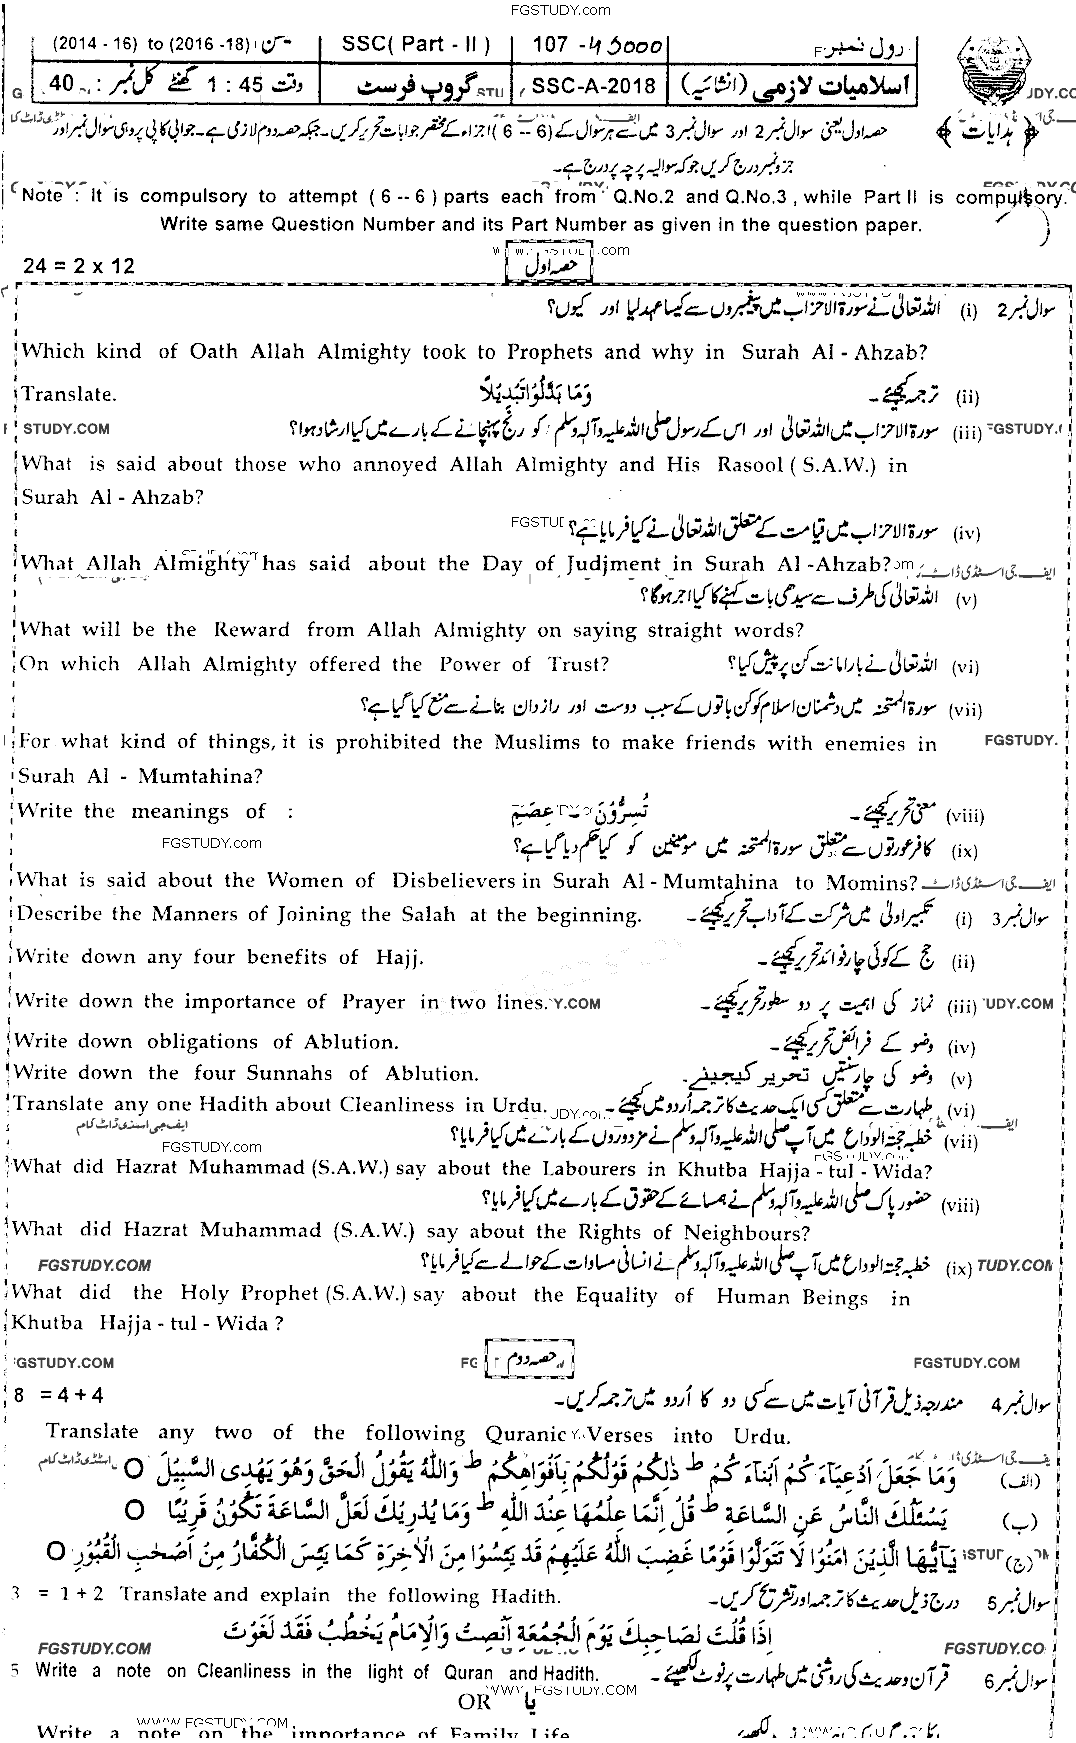 FGSTUDY.com
(2014 - 16) to (2016 -18) SSC( Part - II ) 107 -45000 رول نمبر
40 کل نمبر : وقت 1 : 45 گھنٹے گروپ فرسٹ SSC-A-2018 اسلامیات لازمی (انشائیہ)
﴿ ہدایات ﴾ حصہ اول یعنی سوال نمبر 2 اور سوال نمبر 3 میں سے ہر سوال کے (6 -- 6) اجزاء کے مختصر جوابات تحریر کریں۔ جبکہ حصہ دوم لازمی ہے۔ جوابی کاپی پر وہی سوال نمبر اور
جز و نمبر درج کریں جو کہ سوالیہ پرچہ پر درج ہے۔
Note : It is compulsory to attempt ( 6 -- 6 ) parts each from Q.No.2 and Q.No.3 , while Part II is compulsory.
Write same Question Number and its Part Number as given in the question paper.
24 = 2 x 12 حصہ اول
سوال نمبر 2 (i) اللہ تعالیٰ نے سورۃ الاحزاب میں پیغمبروں سے کیسا عہد لیا اور کیوں؟
Which kind of Oath Allah Almighty took to Prophets and why in Surah Al - Ahzab?
Translate. وَمَا بَدَّلُوْا تَبْدِیْلًا (ii) ترجمہ کیجئے۔
STUDY.COM (iii) سورۃ الاحزاب میں اللہ تعالیٰ اور اس کے رسول صلی اللہ علیہ وآلہ وسلم کو رنج پہنچانے کے بارے میں کیا ارشاد ہوا؟ FGSTUDY.
What is said about those who annoyed Allah Almighty and His Rasool ( S.A.W.) in
Surah Al - Ahzab?
(iv) سورۃ الاحزاب میں قیامت کے متعلق اللہ تعالیٰ نے کیا فرمایا ہے؟
What Allah Almighty has said about the Day of Judjment in Surah Al -Ahzab?
(v) اللہ تعالیٰ کی طرف سے سیدھی بات کہنے کا کیا اجر ہوگا؟
What will be the Reward from Allah Almighty on saying straight words?
On which Allah Almighty offered the Power of Trust? (vi) اللہ تعالیٰ نے بار امانت کن پر پیش کیا؟
(vii) سورۃ الممتحنہ میں دشمنان اسلام کو کن باتوں کے سبب دوست اور راز دان بنانے سے منع کیا گیا ہے؟
For what kind of things, it is prohibited the Muslims to make friends with enemies in FGSTUDY.
Surah Al - Mumtahina?
Write the meanings of : تُسِرُّوْنَ - عِصَمِ (viii) معنی تحریر کیجئے۔
FGSTUDY.com (ix) کافر عورتوں سے متعلق سورۃ الممتحنہ میں مومنین کو کیا حکم دیا گیا ہے؟
What is said about the Women of Disbelievers in Surah Al - Mumtahina to Momins?
Describe the Manners of Joining the Salah at the beginning. سوال نمبر 3 (i) تکبیر اولیٰ میں شرکت کے آداب تحریر کیجئے۔
Write down any four benefits of Hajj. (ii) حج کے کوئی چار فوائد تحریر کیجئے۔
Write down the importance of Prayer in two lines. Y.COM (iii) نماز کی اہمیت پر دو سطور تحریر کیجئے۔ UDY.COM
Write down obligations of Ablution. (iv) وضو کے فرائض تحریر کیجئے۔
Write down the four Sunnahs of Ablution. (v) وضو کی چار سنتیں تحریر کیجیئے۔
Translate any one Hadith about Cleanliness in Urdu. (vi) طہارت سے متعلق کسی ایک حدیث کا ترجمہ اُردو میں کیجئے۔
FGSTUDY.com (vii) خطبہ حجتہ الوداع میں آپ صلی اللہ علیہ وآلہ وسلم نے مزدوروں کے بارے میں کیا فرمایا؟
What did Hazrat Muhammad (S.A.W.) say about the Labourers in Khutba Hajja - tul - Wida?
(viii) حضور پاک صلی اللہ علیہ وآلہ وسلم نے ہمسائے کے حقوق کے بارے میں کیا فرمایا؟
What did Hazrat Muhammad (S.A.W.) say about the Rights of Neighbours?
FGSTUDY.COM (ix) خطبہ حجتہ الوداع میں آپ صلی اللہ علیہ وآلہ وسلم نے انسانی مساوات کے حوالے سے کیا فرمایا؟ TUDY.COM
What did the Holy Prophet (S.A.W.) say about the Equality of Human Beings in
Khutba Hajja - tul - Wida ?
FGSTUDY.COM حصہ دوم FGSTUDY.COM
8 = 4 + 4 سوال نمبر 4 مندرجہ ذیل قرآنی آیات میں سے کسی دو کا اُردو میں ترجمہ کریں۔
Translate any two of the following Quranic Verses into Urdu.
(الف) وَمَا جَعَلَ اَدْعِیَآءَ كُمْ اَبْنَآءَ كُمْ ط ذٰلِكُمْ قَوْلُكُمْ بِاَفْوَاهِكُمْ ط وَاللّٰهُ یَقُوْلُ الْحَقَّ وَهُوَ یَهْدِی السَّبِیْلَ O
(ب) یَسْئَلُكَ النَّاسُ عَنِ السَّاعَةِ ط قُلْ اِنَّمَا عِلْمُهَا عِنْدَ اللّٰهِ ط وَمَا یُدْرِیْكَ لَعَلَّ السَّاعَةَ تَكُوْنُ قَرِیْبًا O
(ج) یٰٓاَیُّهَا الَّذِیْنَ اٰمَنُوْا لَا تَتَوَلَّوْا قَوْمًا غَضِبَ اللّٰهُ عَلَیْهِمْ قَدْ یَئِسُوْا مِنَ الْاٰخِرَةِ كَمَا یَئِسَ الْكُفَّارُ مِنْ اَصْحٰبِ الْقُبُوْرِ O
3 = 1 + 2 Translate and explain the following Hadith. سوال نمبر 5 درج ذیل حدیث کا ترجمہ اور تشریح کریں۔
اِذَا قُلْتَ لِصَاحِبِكَ یَوْمَ الْجُمُعَةِ اَنْصِتْ وَالْاِمَامُ یَخْطُبُ فَقَدْ لَغَوْتَ
FGSTUDY.COM FGSTUDY.CO
5 Write a note on Cleanliness in the light of Quran and Hadith. سوال نمبر 6 قرآن و حدیث کی روشنی میں طہارت پر نوٹ لکھیئے۔
OR یا WWW.FGSTUDY.COM
WWW.FGSTUDY.COM
Write a note on the importance of Family Life.